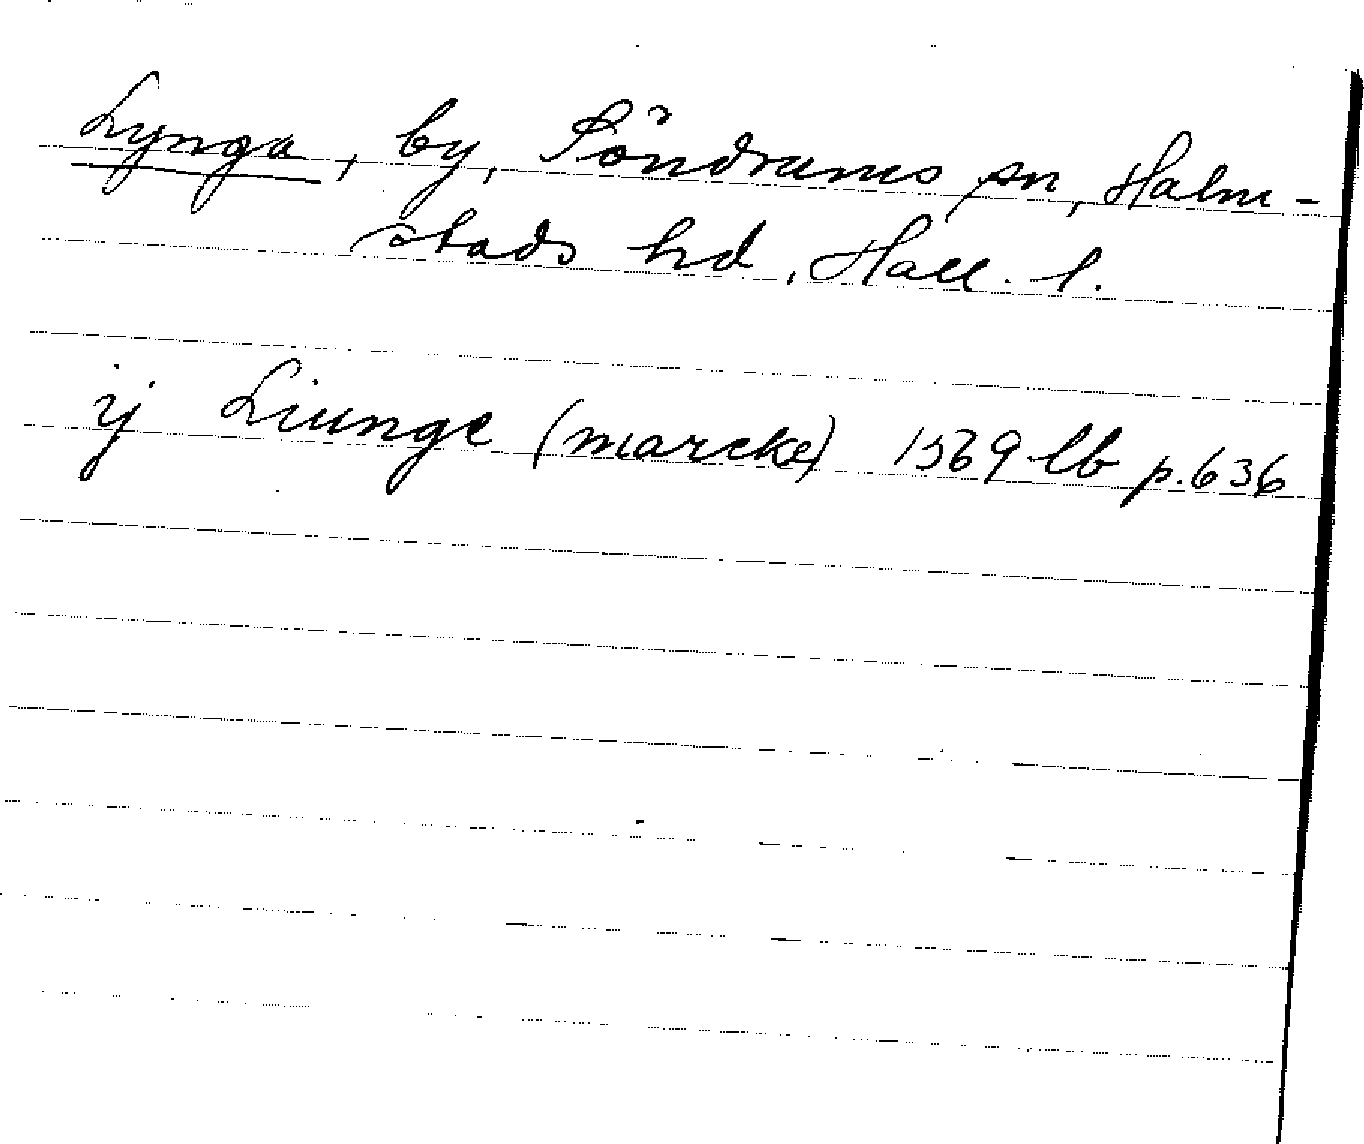 Lynga, by, Söndrums sn, Halm-
stads hd, Hall. l.
ij Liunge (marcke) 1569 lb p. 636